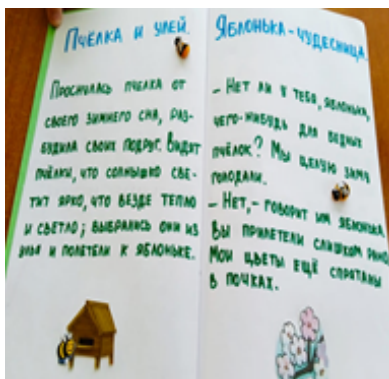 Пчёлка и улей.
Проснулась пчелка от
своего зимнего сна, раз-
будила своих подруг. Видят
пчёлки, что солнышко све-
тит ярко, что везде тепло
и светло; выбрались они из
улья и полетели к яблоньке.
Яблонька-чудесница.
– Нет ли у тебя, яблонька,
чего-нибудь для бедных
пчёлок? Мы целую зиму
голодали.
– Нет, – говорит им яблонька,
вы прилетели слишком рано.
Мои цветы ещё спрятаны
в почках.